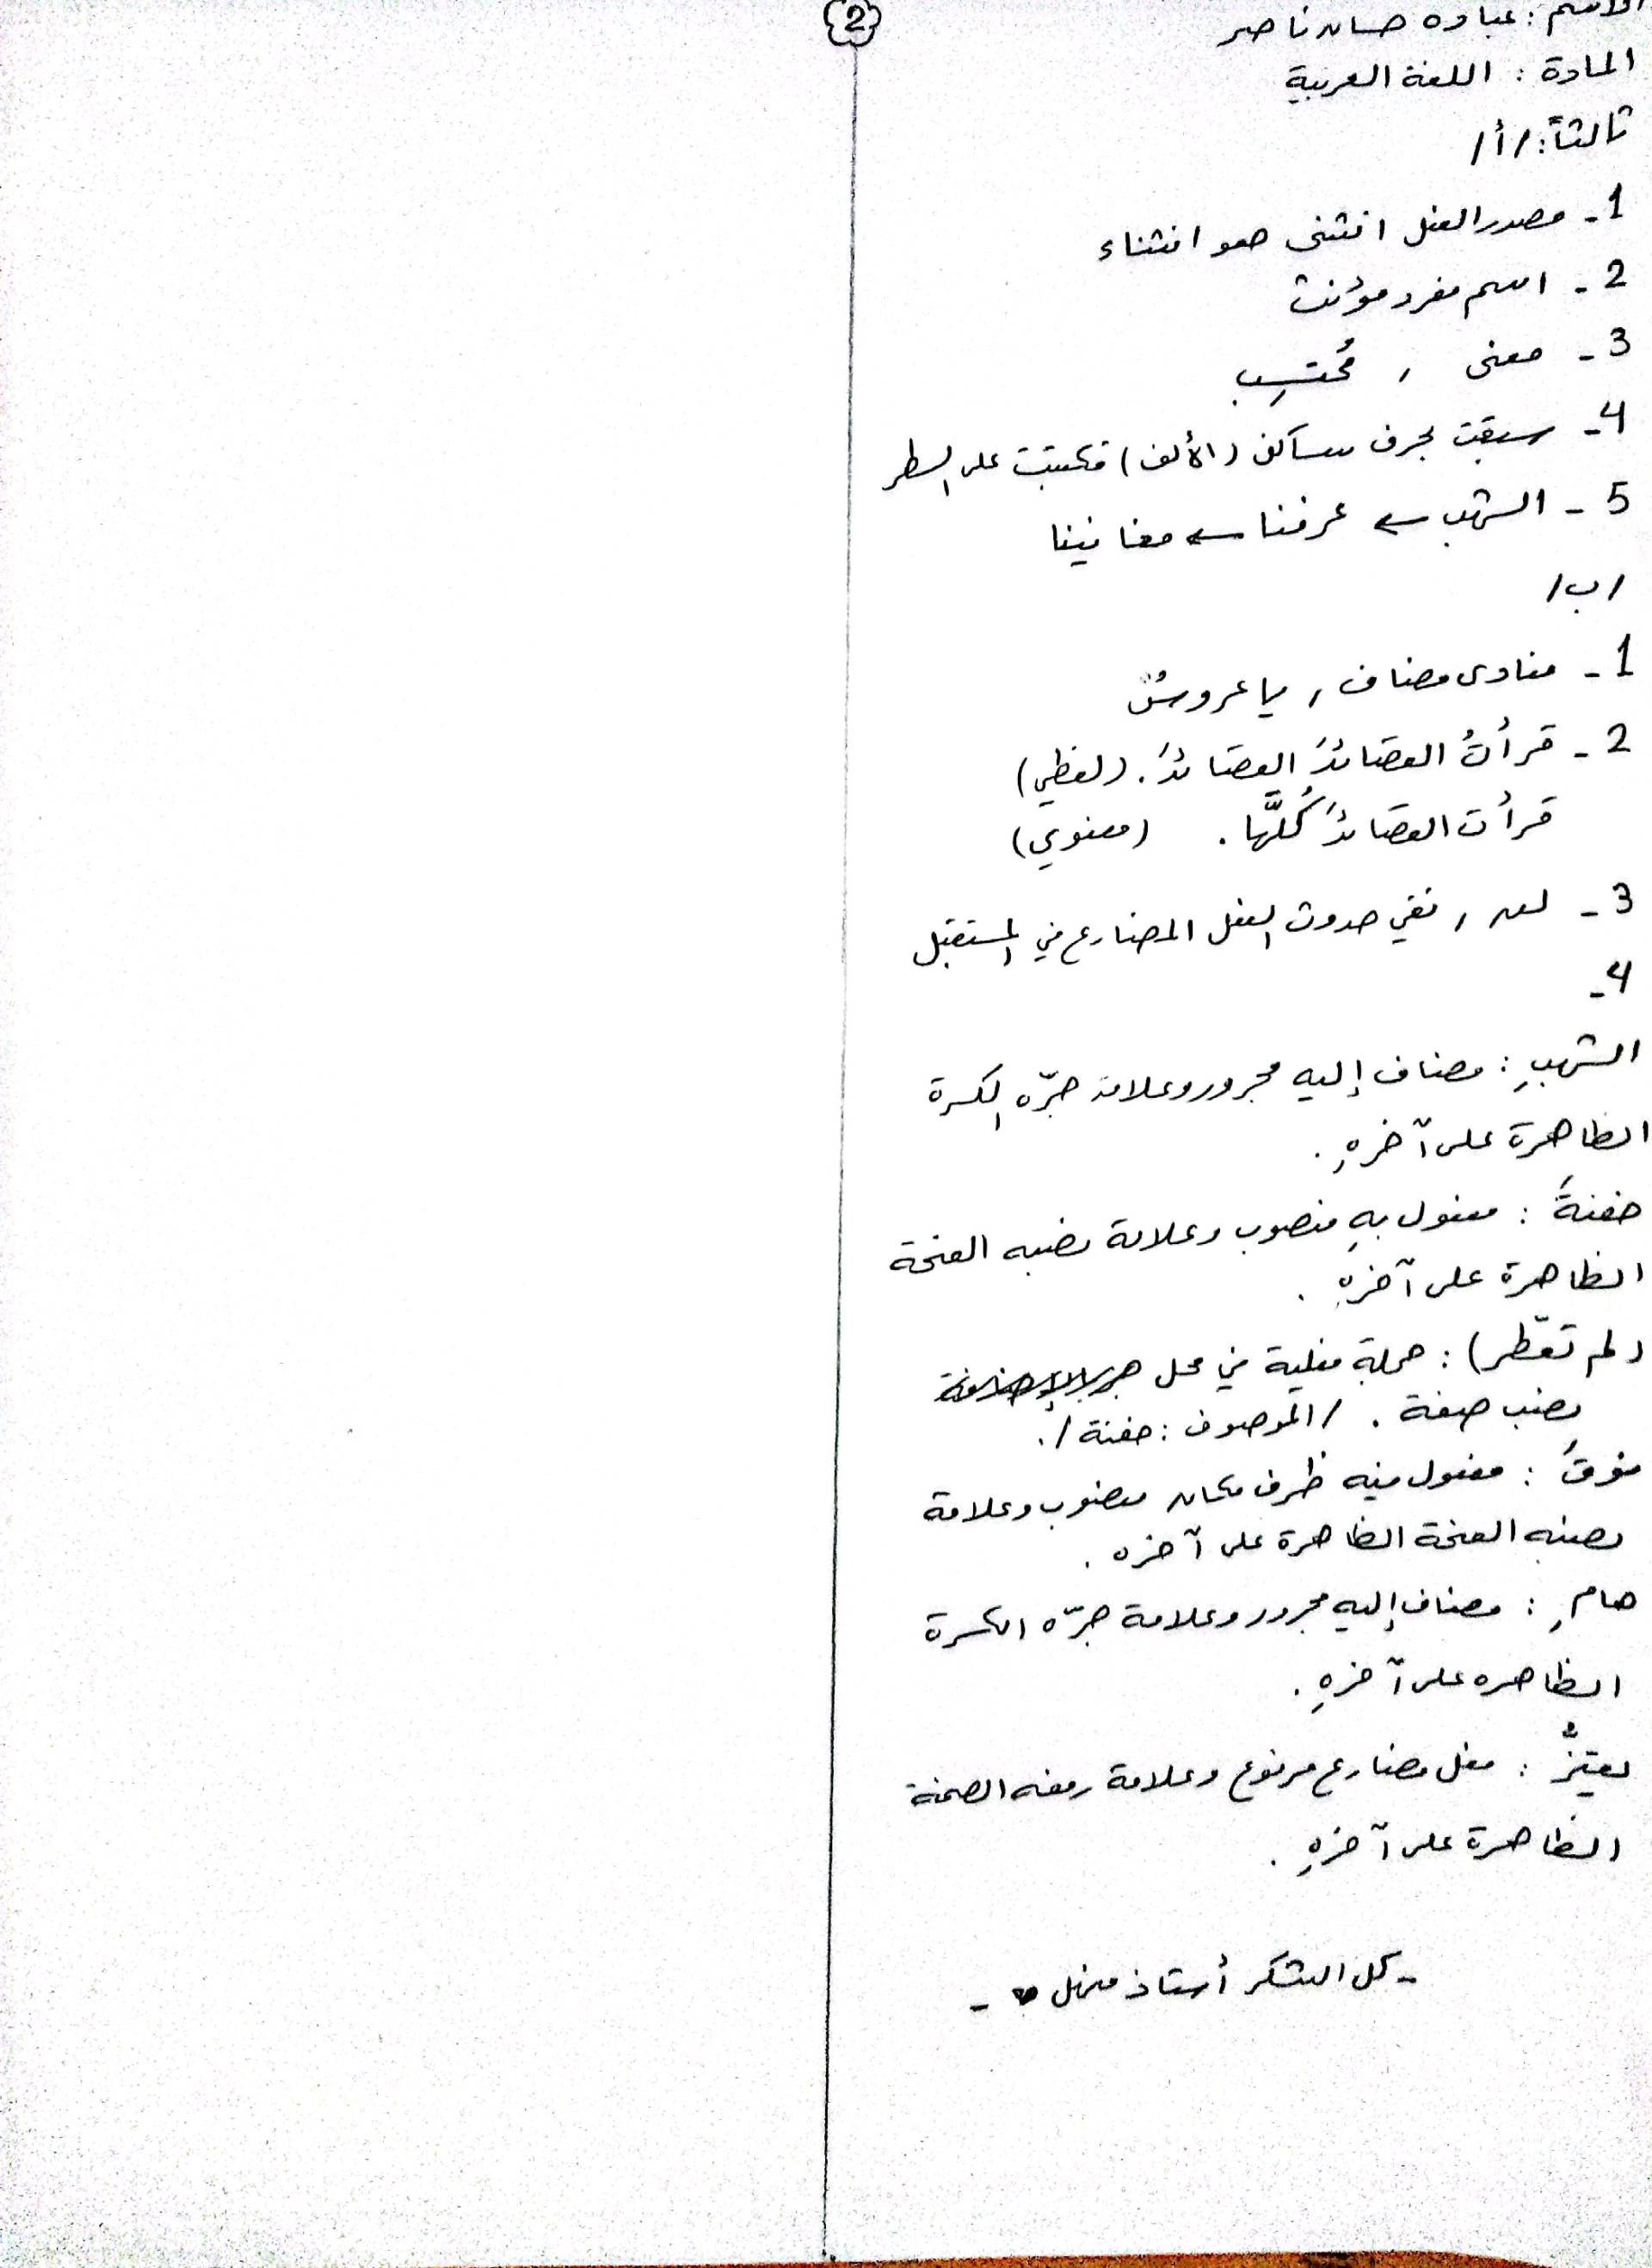 2
الاسم : عباده حسان ناصر
المادة : اللغة العربية
ثالثاً : /أ/
1- مصدر الفعل انثنى هو انثناء
2- اسم مفرد مؤنث
3- معنى ، مُحتسِب
4- سبقت بحرف ساكن (الألف) فكتبت على السطر
5- الشهب ← عرفنا ← مغانينا
/ب/
1- منادى مضاف ، يا عروسُ
2- قرأتُ القصائدَ القصائدَ . (لفظي)
قرأت القصائدَ كُلَّها . (معنوي)
3- لن ، نفي حدوث الفعل المضارع في المستقبل
4-
الشهبِ : مضاف إليه مجرور وعلامة جرّه الكسرة
الظاهرة على آخرهِ .
حفنةً : مفعول بهِ منصوب وعلامة نصبه الفتحة
الظاهرة على آخرهِ .
(لم تقطر) : جملة فعلية في محل جر بالإضافة
نصب صفة . /الموصوف : حفنة/ .
فوقَ : مفعول فيه ظرف مكان منصوب وعلامة
نصبه الفتحة الظاهرة على آخره .
هامِ : مضاف إليه مجرور وعلامة جرّه الكسرة
الظاهره على آخرهِ .
يعتزُّ : فعل مضارع مرفوع وعلامة رفعه الضمة
الظاهرة على آخرهِ .
- كل الشكر أستاذ منهل -